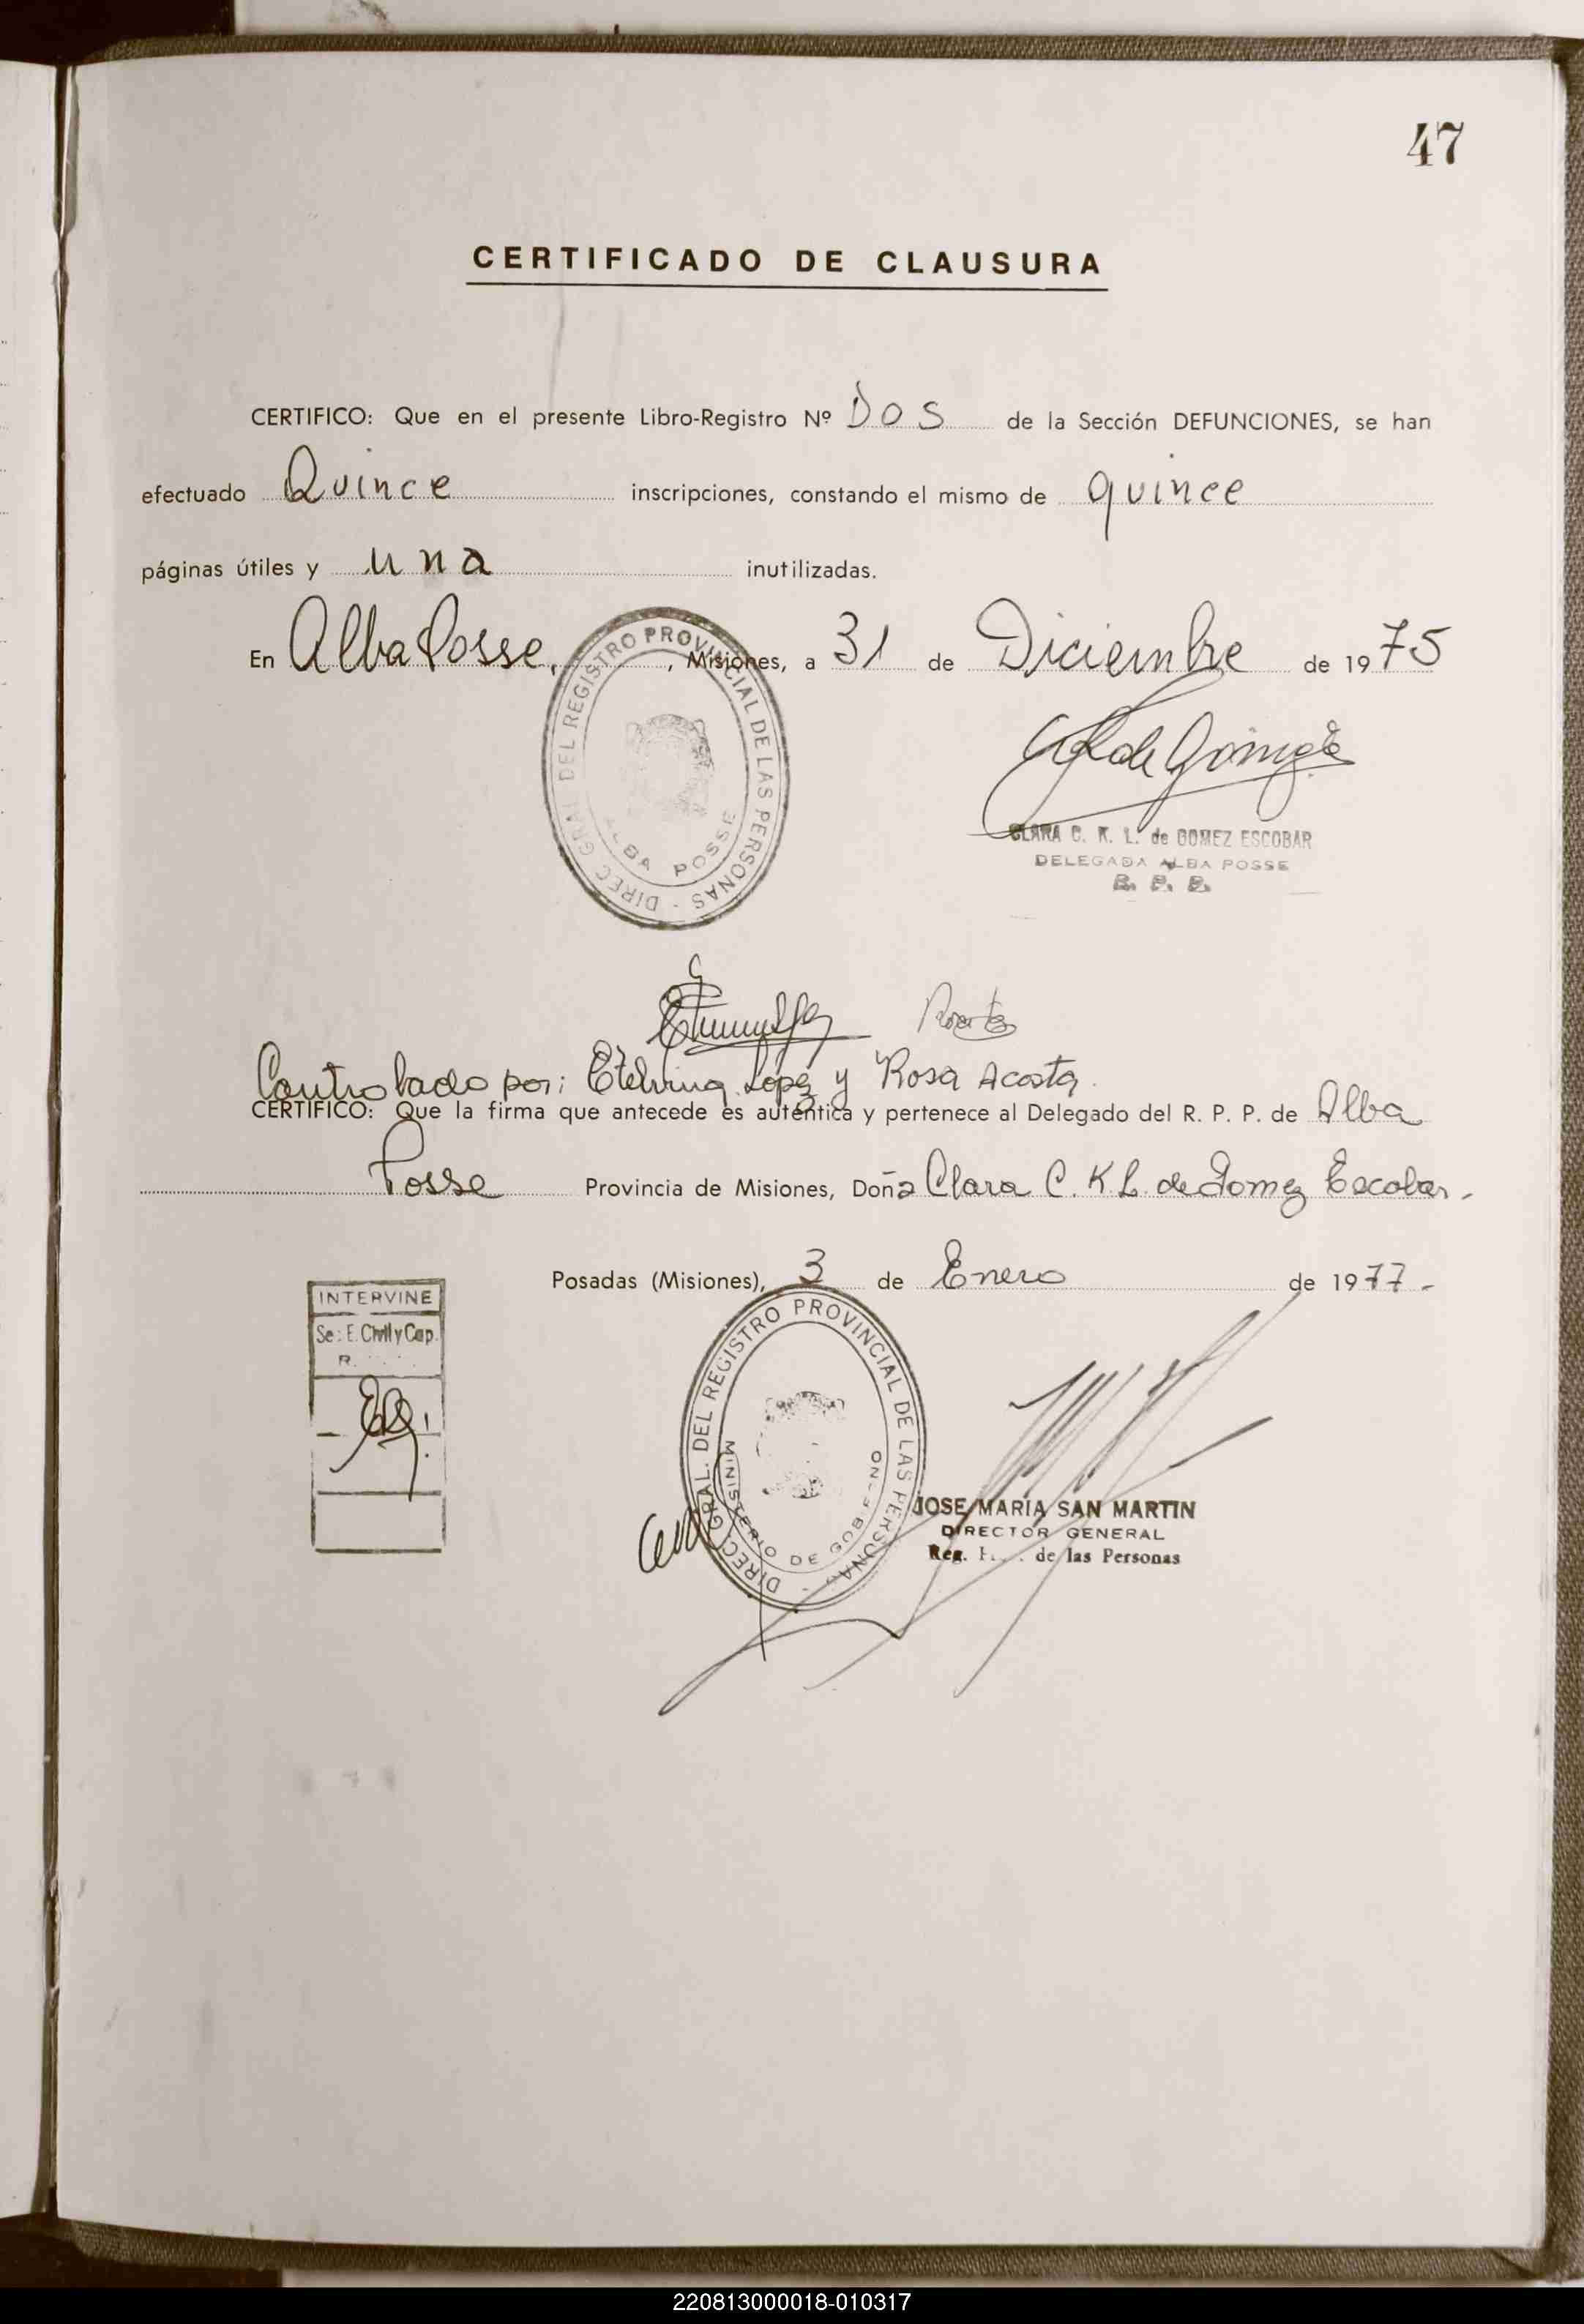 47
CERTIFICADO DE CLAUSURA
CERTIFICO: Que en el presente Libro-Registro Nº Dos de la Sección DEFUNCIONES, se han
efectuado Quince inscripciones, constando el mismo de quince
páginas útiles y una inutilizadas.
En Alba Posse, , Misiones, a 31 de Diciembre de 1975
DIREC. GRAL. DEL REGISTRO PROVINCIAL DE LAS PERSONAS -
ALBA POSSE
CLARA C. K. L. de GOMEZ ESCOBAR
DELEGADA ALBA POSSE
Controlado por: Etelvina Lopez y Rosa Acosta.
CERTIFICO: Que la firma que antecede es auténtica y pertenece al Delegado del R. P. P. de Alba
Posse Provincia de Misiones, Doña Clara C. K. L. de Gomez Escobar.-
Posadas (Misiones), 3 de Enero de 1977.-
INTERVINE
Se: E. Civil y Cap.
R.
DIREC. GRAL. DEL REGISTRO PROVINCIAL DE LAS PERSONAS -
MINISTERIO DE GOBIERNO
JOSE MARIA SAN MARTIN
DIRECTOR GENERAL
Reg. de las Personas
220813000018-010317